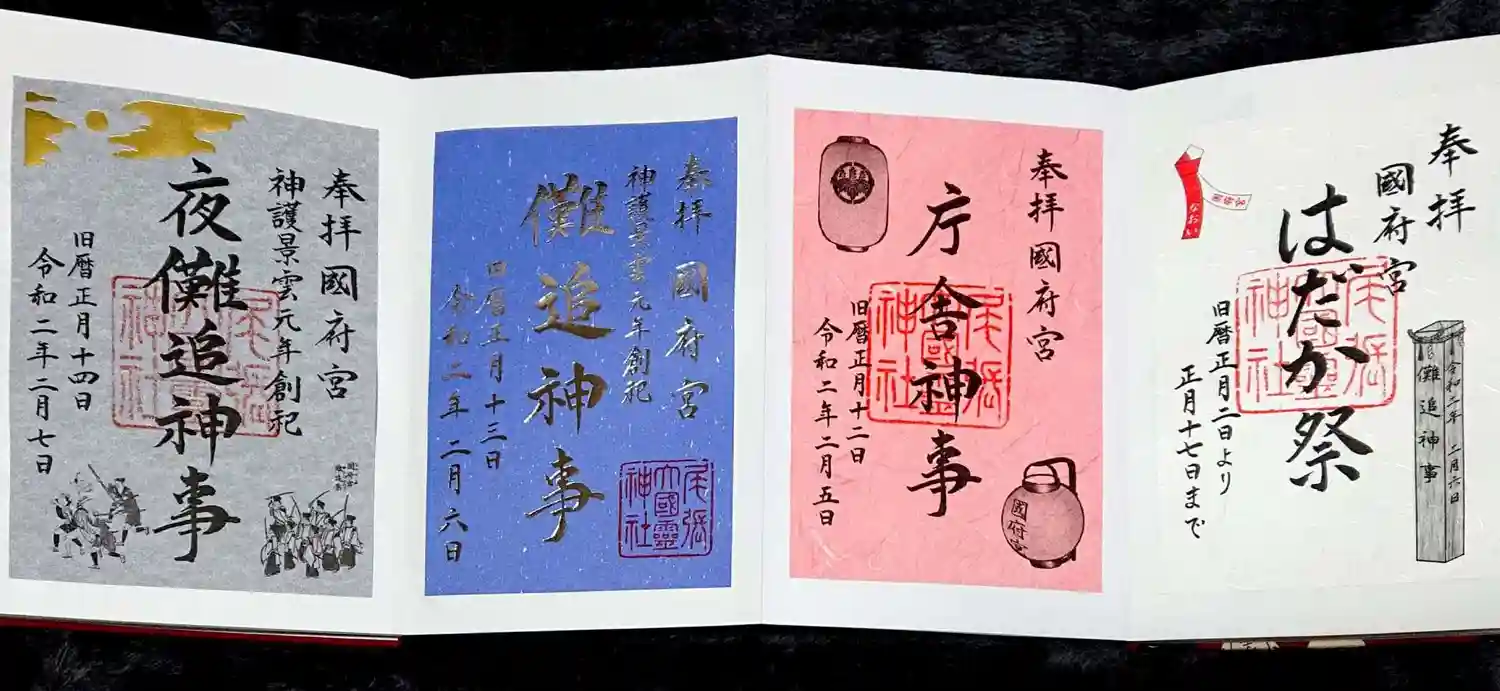 奉拝
國府宮
はだか祭
旧暦正月二日より
正月十七日まで
令和二年 二月六日
儺追神事
なおい
尾張
大國靈
神社
奉拝國府宮
庁舎神事
旧暦正月十二日
令和二年二月五日
國府宮
尾張
大國靈
神社
奉拝國府宮
神護景雲元年創祀
儺追神事
旧暦正月十三日
令和二年二月六日
尾張
大國靈
神社
奉拝國府宮
神護景雲元年創祀
夜儺追神事
旧暦正月十四日
令和二年二月七日
尾張
大國靈
神社